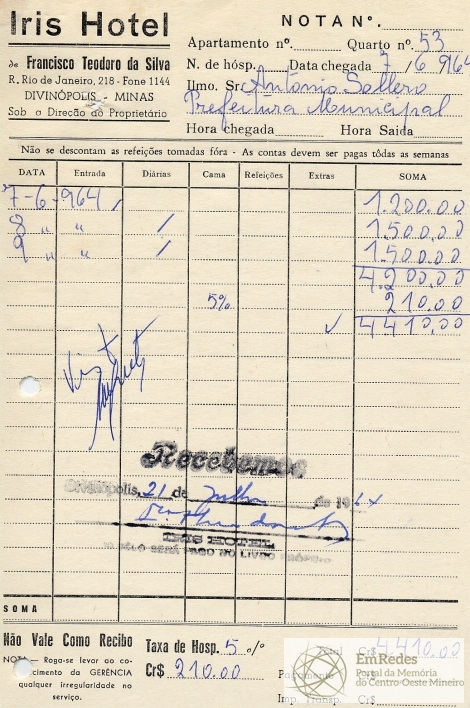 Iris Hotel
de Francisco Teodoro da Silva
R. Rio de Janeiro, 218 - Fone 1144
DIVINÓPOLIS - MINAS
Sob a Direção do Proprietário
NOTA Nº.
Apartamento nº. Quarto nº. 53
N. de hósp. Data chegada 7 / 6 964
Ilmo. Sr. Antônio Sallero
Prefeitura Municipal
Hora chegada Hora Saida
Não se descontam as refeições tomadas fóra - As contas devem ser pagas tôdas as semanas
DATA Entrada Diárias Cama Refeições Extras SOMA
7-6-964 / 1.200.00
8 " " / 1.500.00
9 " " / 1.500.00
4.200.00
5% 210.00
4410.00
Visto
Recebemos
Divinópolis, 21 de Julho de 1964
IRIS HOTEL
O SÊLO SERÁ PAGO NO LIVRO PRÓPRIO
SOMA
Não Vale Como Recibo
NOTA — Roga-se levar ao co-
nhecimento da GERÊNCIA
qualquer irregularidade no
serviço.
Taxa de Hosp. 5 o/o
Cr$ 210.00
Total Cr$ 4.410.00
Pagamento Cr$
Imp. Transp. Cr$
EmRedes
Portal da Memória
do Centro-Oeste Mineiro